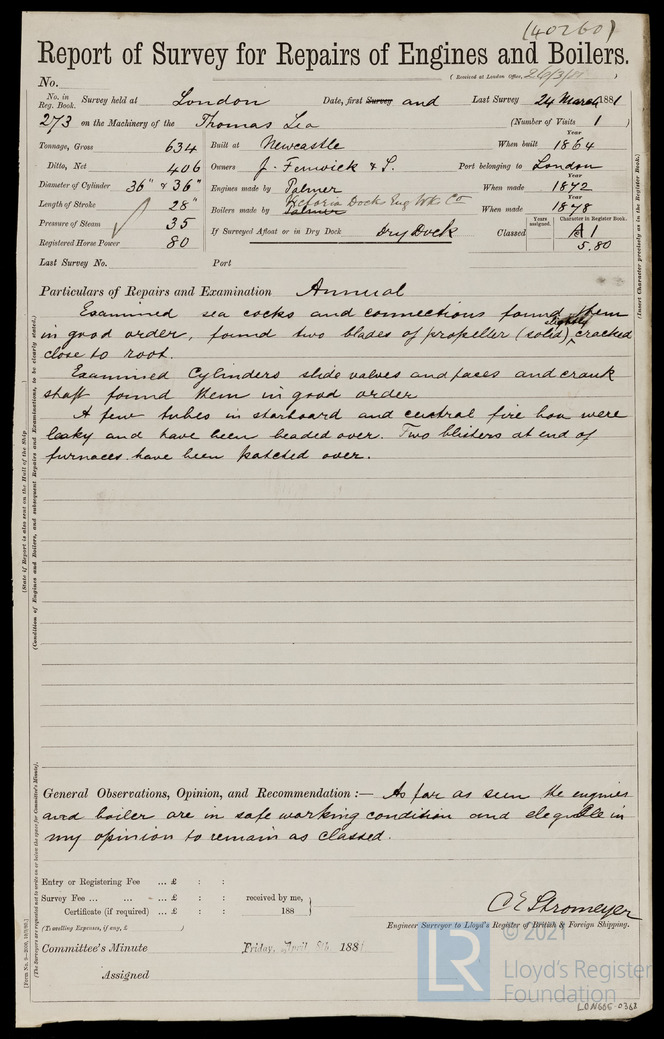 (40260)
Report of Survey for Repairs of Engines and Boilers.
(Received at London Office, 26/3/81)
No.
No. in Reg. Book. Survey held at London Date, first Survey and Last Survey 24 March 1881
273 on the Machinery of the Thomas Lea (Number of Visits 1)
Tonnage, Gross 634 Built at Newcastle When built Year 1864
Ditto, Net 406 Owners J. Fenwick & S. Port belonging to London
Diameter of Cylinder 36" & 36" Engines made by Palmer When made Year 1872
Length of Stroke 28" Boilers made by Palmer Victoria Dock Eng Wks Co When made Year 1878
Pressure of Steam 35 If Surveyed Afloat or in Dry Dock Dry Dock Classed Years assigned. Character in Register Book. A1
Registered Horse Power 80 5.80
Last Survey No. Port
Particulars of Repairs and Examination Annual
Examined sea cocks and connections found them
in good order, found two blades of propeller (solid) slightly cracked
close to root.
Examined Cylinders slide valves and faces and crank
shaft found them in good order
A few tubes in starboard and central fire box were
leaky and have been beaded over. Two blisters at end of
furnaces have been patched over.
General Observations, Opinion, and Recommendation :— As far as seen the engines
and boiler are in safe working condition and elegible in
my opinion to remain as classed.
Entry or Registering Fee ... £ : :
Survey Fee ... ... ... £ : : received by me,
Certificate (if required) ... £ : : 188
(Travelling Expenses, if any, £ )
C E Stromeyer
Engineer Surveyor to Lloyd's Register of British & Foreign Shipping.
Committee's Minute Friday, April 8th, 1881
Assigned
(State if Report is also sent on the Hull of the Ship.
(Condition of Engines and Boilers, and subsequent Repairs and Examinations, to be clearly stated.)
(The Surveyors are requested not to write on or below the space for Committee's Minute).
(Insert Character precisely as in the Register Book.)
LR
© 2021
Lloyd's Register
Foundation
LON665-0368